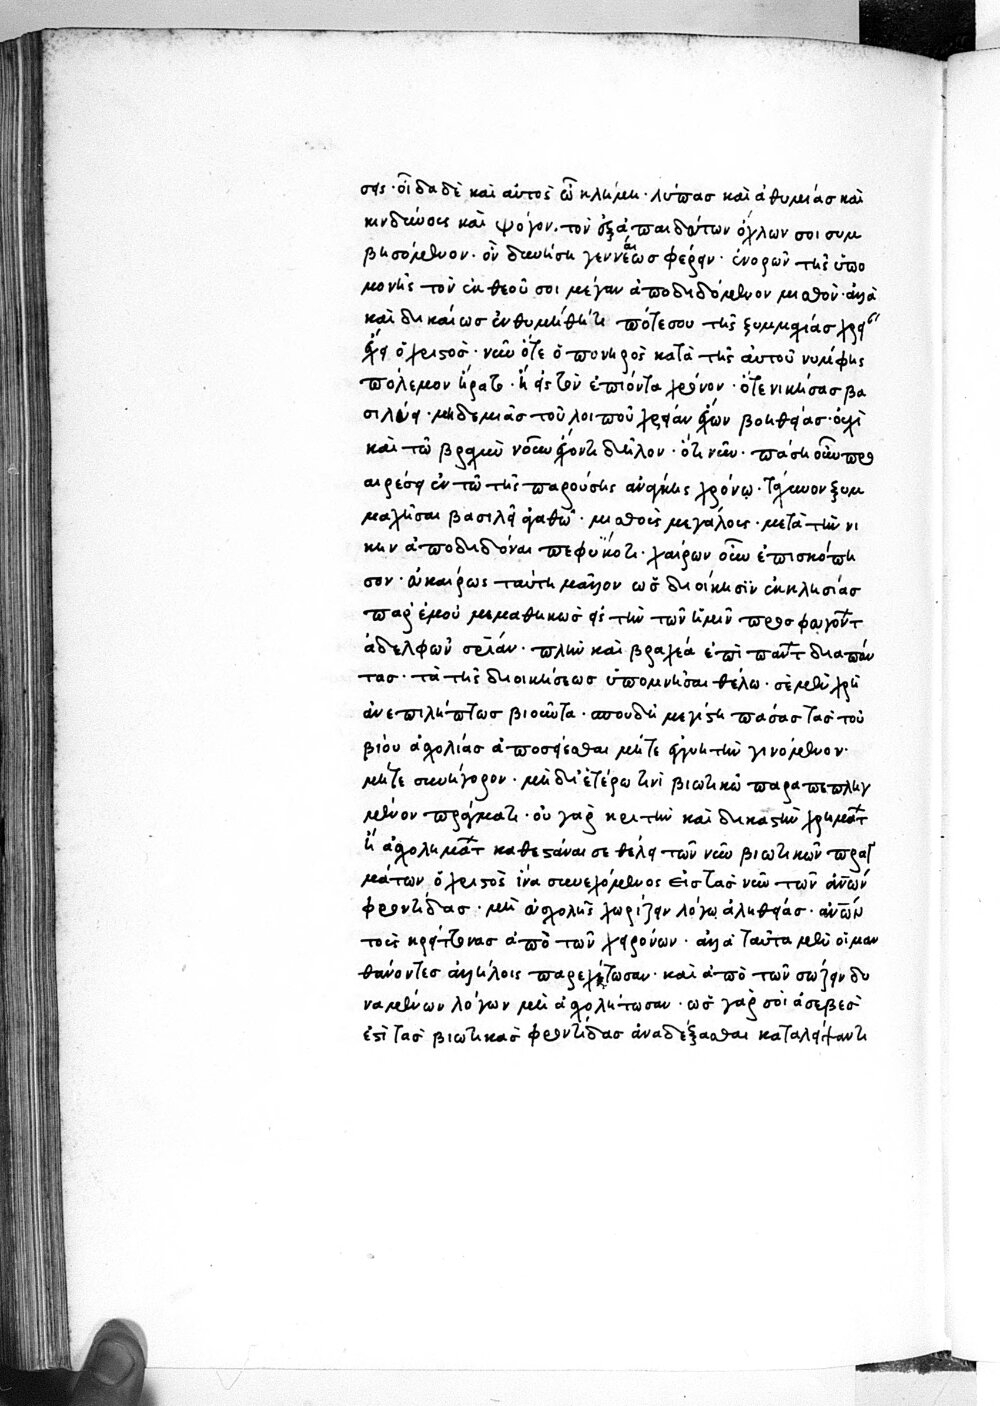 σης· οἶδα δὲ καὶ αὐτὸς ὦ κλήμη· λύπας καὶ ἀθυμίας καὶ
κινδύνους καὶ ψόγον. τὸν ἐξ ἀπαιδεύτων ὄχλων σοι συμ
βησόμενον· ὃν δυνήσῃ γενναίως φέρειν· ἐνορῶν τῆς ὑπο
μονῆς τὸν ἐκ θεοῦ σοι μέγαν ἀποδιδόμενον μισθόν· ἀλλὰ
καὶ δικαίως ἐνθυμήθητι πότε σου τῆς ξυμμαχίας χρείαν
ἔχει ὁ χριστός· νῦν ὅτε ὁ πονηρὸς κατὰ τῆς αὐτοῦ νύμφης
πόλεμον ἤρατο· ἢ εἰς τὸν ἐπιόντα χρόνον· ὅτε νικήσας βα
σιλεύει· μηδεμιᾶς τοῦ λοιποῦ χρείαν ἔχων βοηθείας· οὐχὶ
καὶ τῷ βραχὺν νοῦν ἔχοντι δῆλον· ὅτι νῦν· πάσῃ οὖν προ
αιρέσει ἐν τῷ τῆς παρούσης ἀνάγκης χρόνῳ· τάχυνον ξυμ
μαχῆσαι βασιλεῖ ἀγαθῷ· μισθοὺς μεγάλους· μετὰ τὴν νί
κην ἀποδιδόναι πεφυκότι· χαίρων οὖν ἐπισκόπη
σον· εὐκαίρως ταύτῃ μᾶλλον ὡς διοίκησιν ἐκκλησίας
παρ' ἐμοῦ μεμαθηκὼς εἰς τὴν τῶν ἡμῖν προσφυγόντων
ἀδελφῶν σωτηρίαν· πλὴν καὶ βραχέα ἐπὶ πάντων διὰ πάν
τας· τὰ τῆς διοικήσεως ὑπομνῆσαι θέλω· σὲ μὲν χρὴ
ἀνεπιλήπτως βιοῦντα· σπουδῇ μεγίστῃ πάσας τὰς τοῦ
βίου ἀσχολίας ἀποσείεσθαι μήτε ἐγγυητὴν γινόμενον·
μήτε συνήγορον· μὴ δὲ ἑτέρῳ τινὶ βιωτικῷ παραπεπλεγ
μένον πράγματι· οὐ γὰρ κριτὴν καὶ δικαστὴν χρημάτων
ἢ ἀσχολημάτων καθεστάναι σε θέλει τῶν νῦν βιωτικῶν πραγ
μάτων ὁ χριστὸς ἵνα συνεχόμενος εἰς τὰς νῦν τῶν ἀνθρώπων
φροντίδας· μὴ εὐσχολῇς χωρίζειν λόγῳ ἀληθείας· ἀνθρώπων
τοὺς κρείττονας ἀπὸ τῶν χειρόνων· ἀλλὰ ταῦτα μὲν οἱ μαν
θάνοντες ἀλλήλοις παρεχέτωσαν· καὶ ἀπὸ τῶν σώζειν δυ
ναμένων λόγων μὴ ἀσχολείτωσαν· ὡς γὰρ σοὶ ἀσεβές
ἐστι τὰς βιωτικὰς φροντίδας ἀναδέξασθαι καταλείψαντι